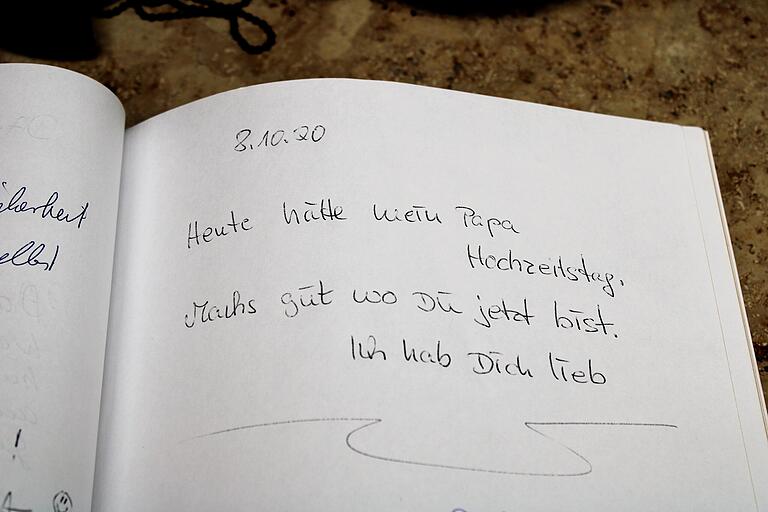 8.10.20
Heute hätte mein Papa
Hochzeitstag.
Machs gut wo Du jetzt bist.
Ich hab Dich lieb
!